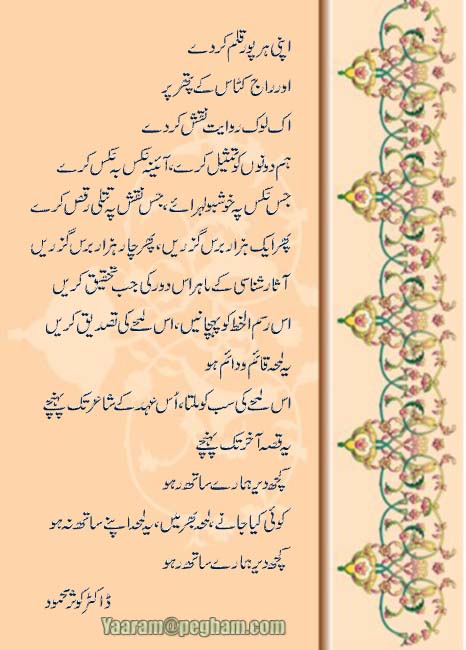 اپنی ہر پور قلم کر دے
اور راج کٹاس کے پتھر پر
اک لوک روایت نقش کر دے
ہم دونوں کو تمثیل کرے، آئینہ عکس بہ عکس کرے
جس عکس پہ خوشبو لہرائے، جس نقش پہ تتلی رقص کرے
پھر ایک ہزار برس گزریں، پھر چار ہزار برس گزریں
آثار شناسی کے ماہر اس دور کی جب تحقیق کریں
اس رسم الخط کو پہچانیں، اس لمحے کی تصدیق کریں
یہ لمحہ قائم و دائم ہو
اس لمحے کی سب کو ملتا، اُس عہد کے شاعر تک پہنچے
یہ قصہ آخر تک پہنچے
کچھ دیر ہمارے ساتھ رہو
کوئی کیا جانے، لمحہ بھر میں، یہ لمحہ اپنے ساتھ نہ ہو
کچھ دیر ہمارے ساتھ رہو
ڈاکٹر کوثر محمود
Yaaram@pegham.com